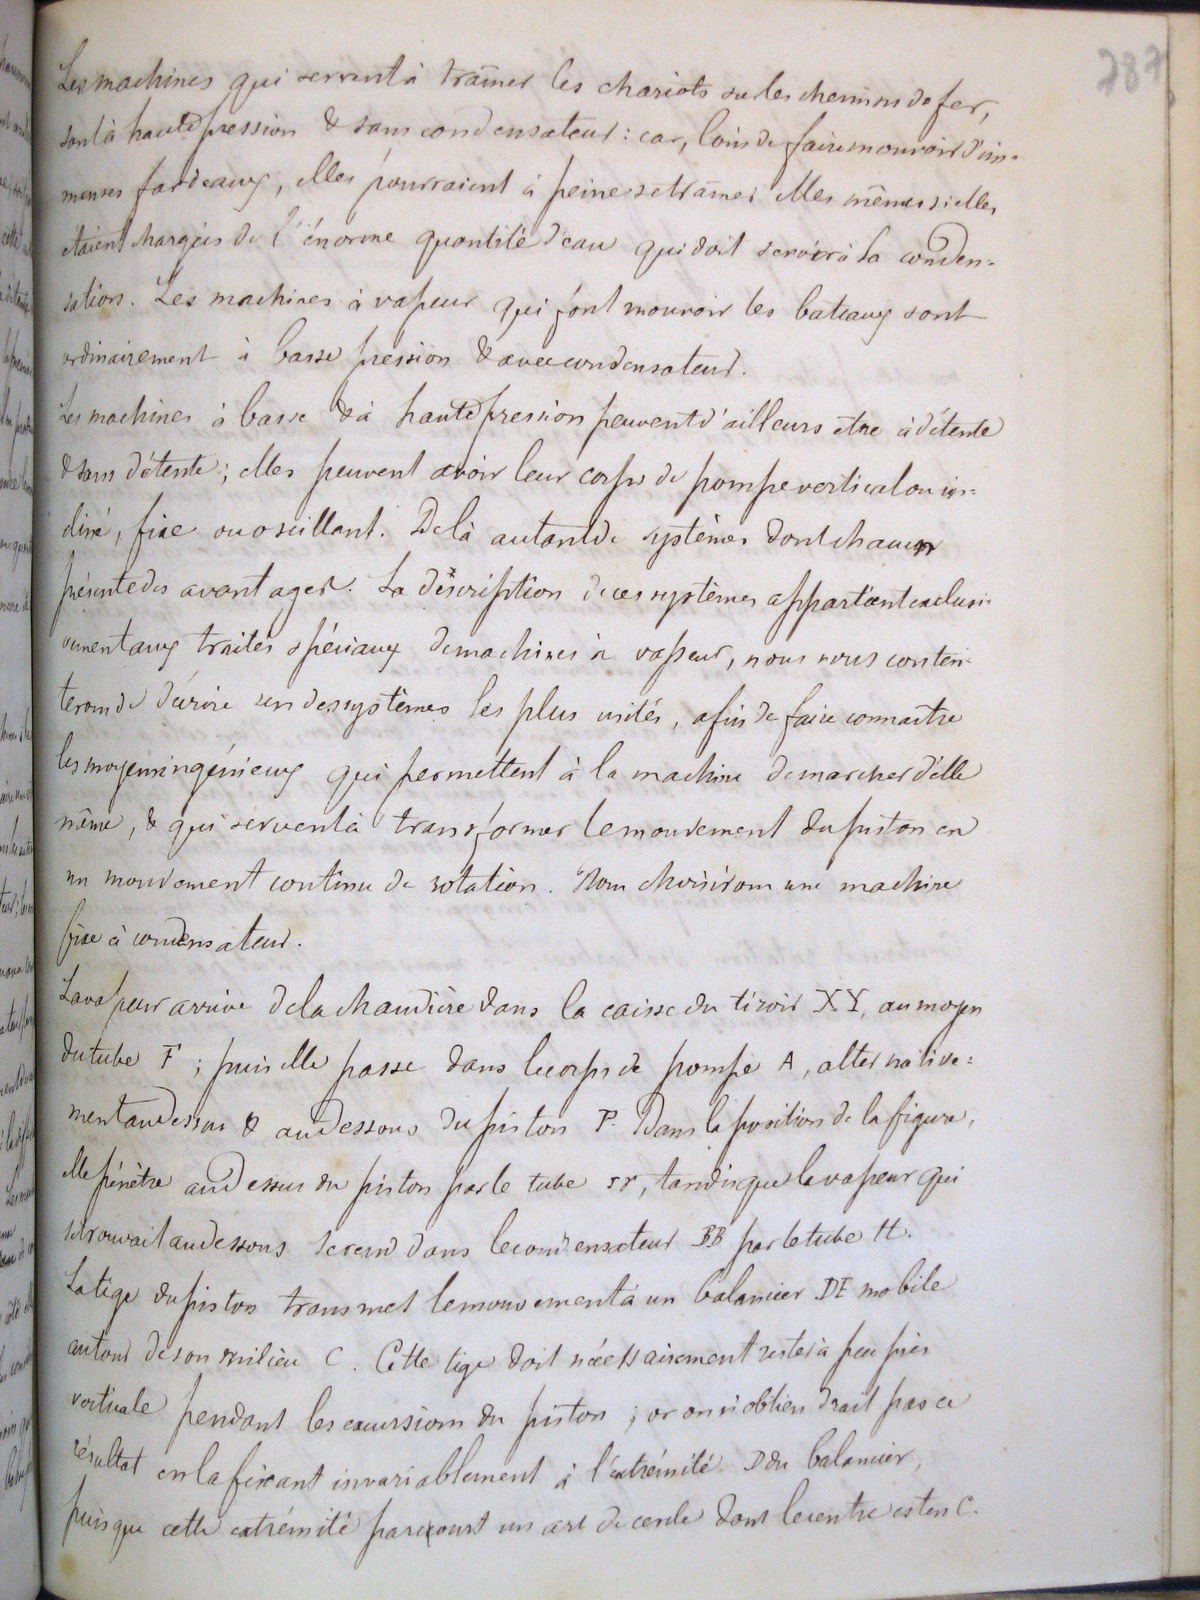 787
Les machines qui servent à traîner les chariots sur les chemins de fer,
sont à haute pression & sans condensateur : car, loin de faire mouvoir d'im-
menses fardeaux, elles pourraient à peine se traîner elles mêmes si elles
étaient chargées de l'énorme quantité d'eau qui doit servir à la conden=
sation. Les machines à vapeur qui font mouvoir les bateaux sont
ordinairement à basse pression & avec condensateur.
Les machines à basse & à haute pression peuvent d'ailleurs être à détente
& sans détente ; elles peuvent avoir leur corps de pompe vertical ou in=
cliné, fixe ou oscillant. De là autant de systèmes dont chacun
présente des avantages. La description de ces systèmes appartient exclusi-
vement aux traités spéciaux de machines à vapeur, nous nous conten-
terons de décrire un des systèmes les plus usités, afin de faire connaître
les moyens ingénieux qui permettent à la machine de marcher d'elle
même, & qui servent à transformer le mouvement du piston en
un mouvement continu de rotation. Nous choisirons une machine
fixe à condensateur.
La vapeur arrive de la chaudière dans la caisse du tiroir XY, au moyen
du tube F ; puis elle passe dans le corps de pompe A, alternative=
ment au dessus & au dessous du piston P. Dans la position de la figure,
elle pénètre au dessus du piston par le tube rr, tandis que la vapeur qui
se trouvait au dessous se rend dans le condensateur BB par le tube H.
La tige du piston transmet le mouvement à un balancier DE mobile
autour de son milieu C. Cette tige doit nécessairement rester à peu près
verticale pendant les excursions du piston ; or on n'obtiendrait pas ce
résultat en la fixant invariablement à l'extrémité D du balancier,
puisque cette extrémité parcourt un arc de cercle dont le centre est en C.